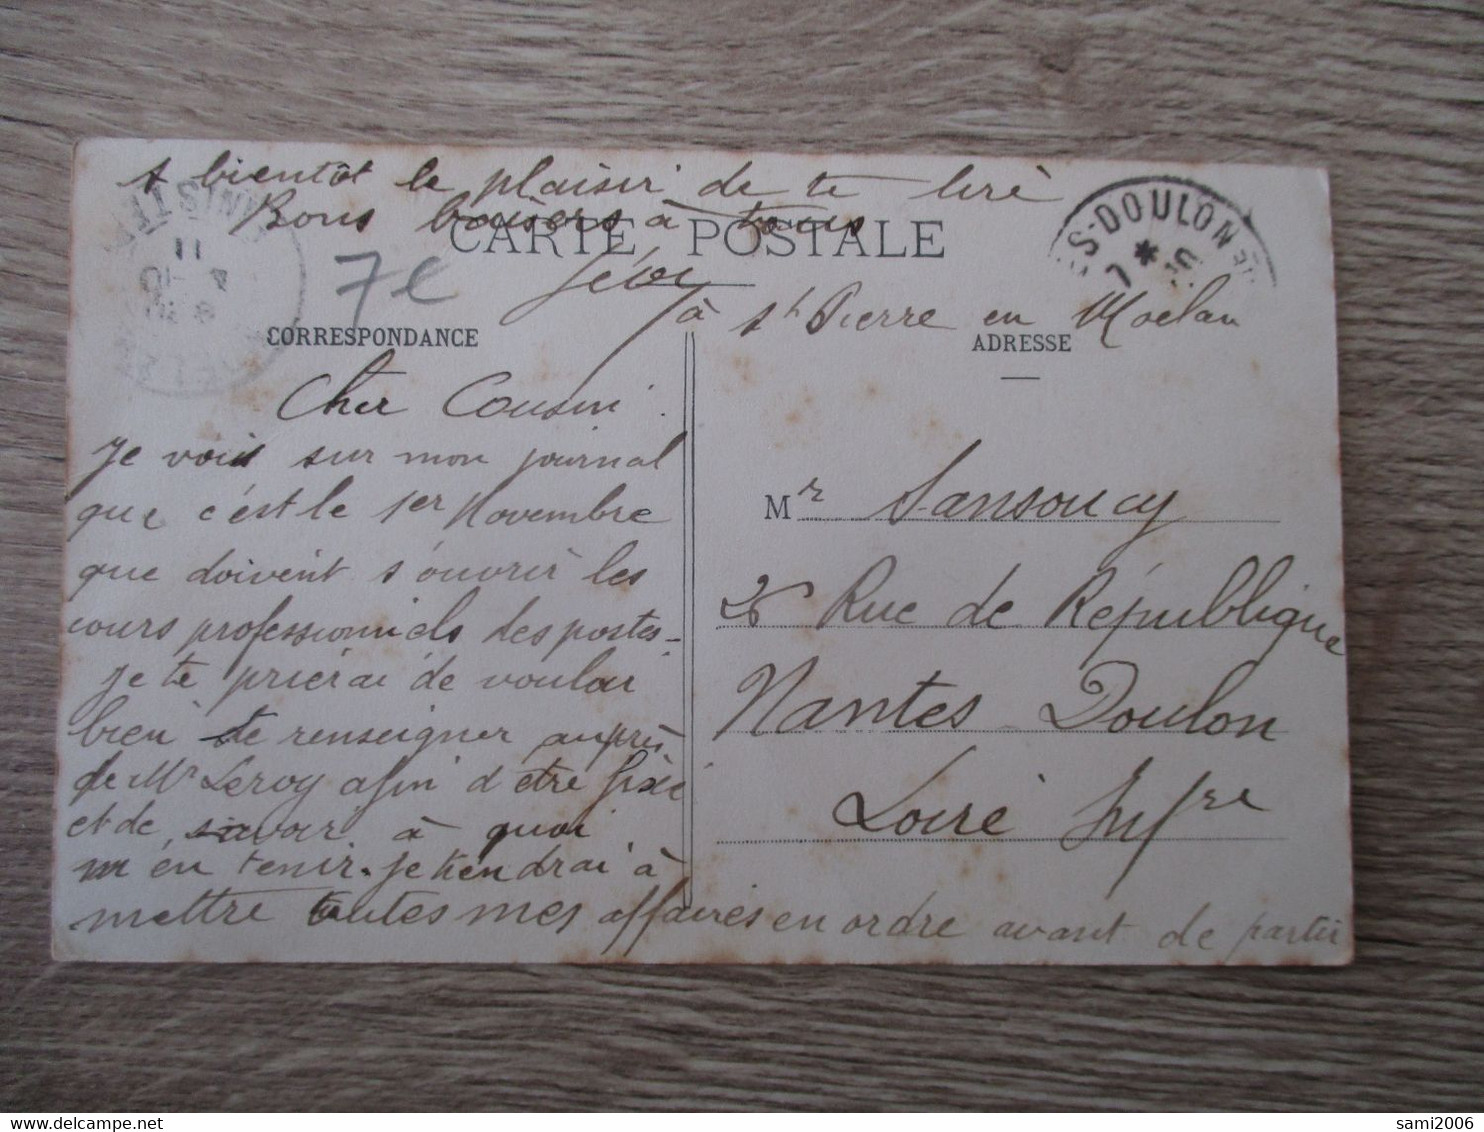 A bientôt le plaisir de te lire
Bons baisers à tous
CARTE POSTALE
7e
à St Pierre en Moelan
CORRESPONDANCE
ADRESSE
S-DOULON
Cher Cousin
Je vois sur mon journal
que c'est le 1er Novembre
que doivent s'ouvrir les
cours professionnels des postes.
je te prierai de vouloir
bien te renseigner auprès
de Mr Leroy afin d'être fixé
et de savoir à quoi
m'en tenir. je tiendrai à
mettre toutes mes affaires en ordre avant de partir
Mr Sansoucy
26 Rue de République
Nantes Doulon
Loire Infre
sami2006